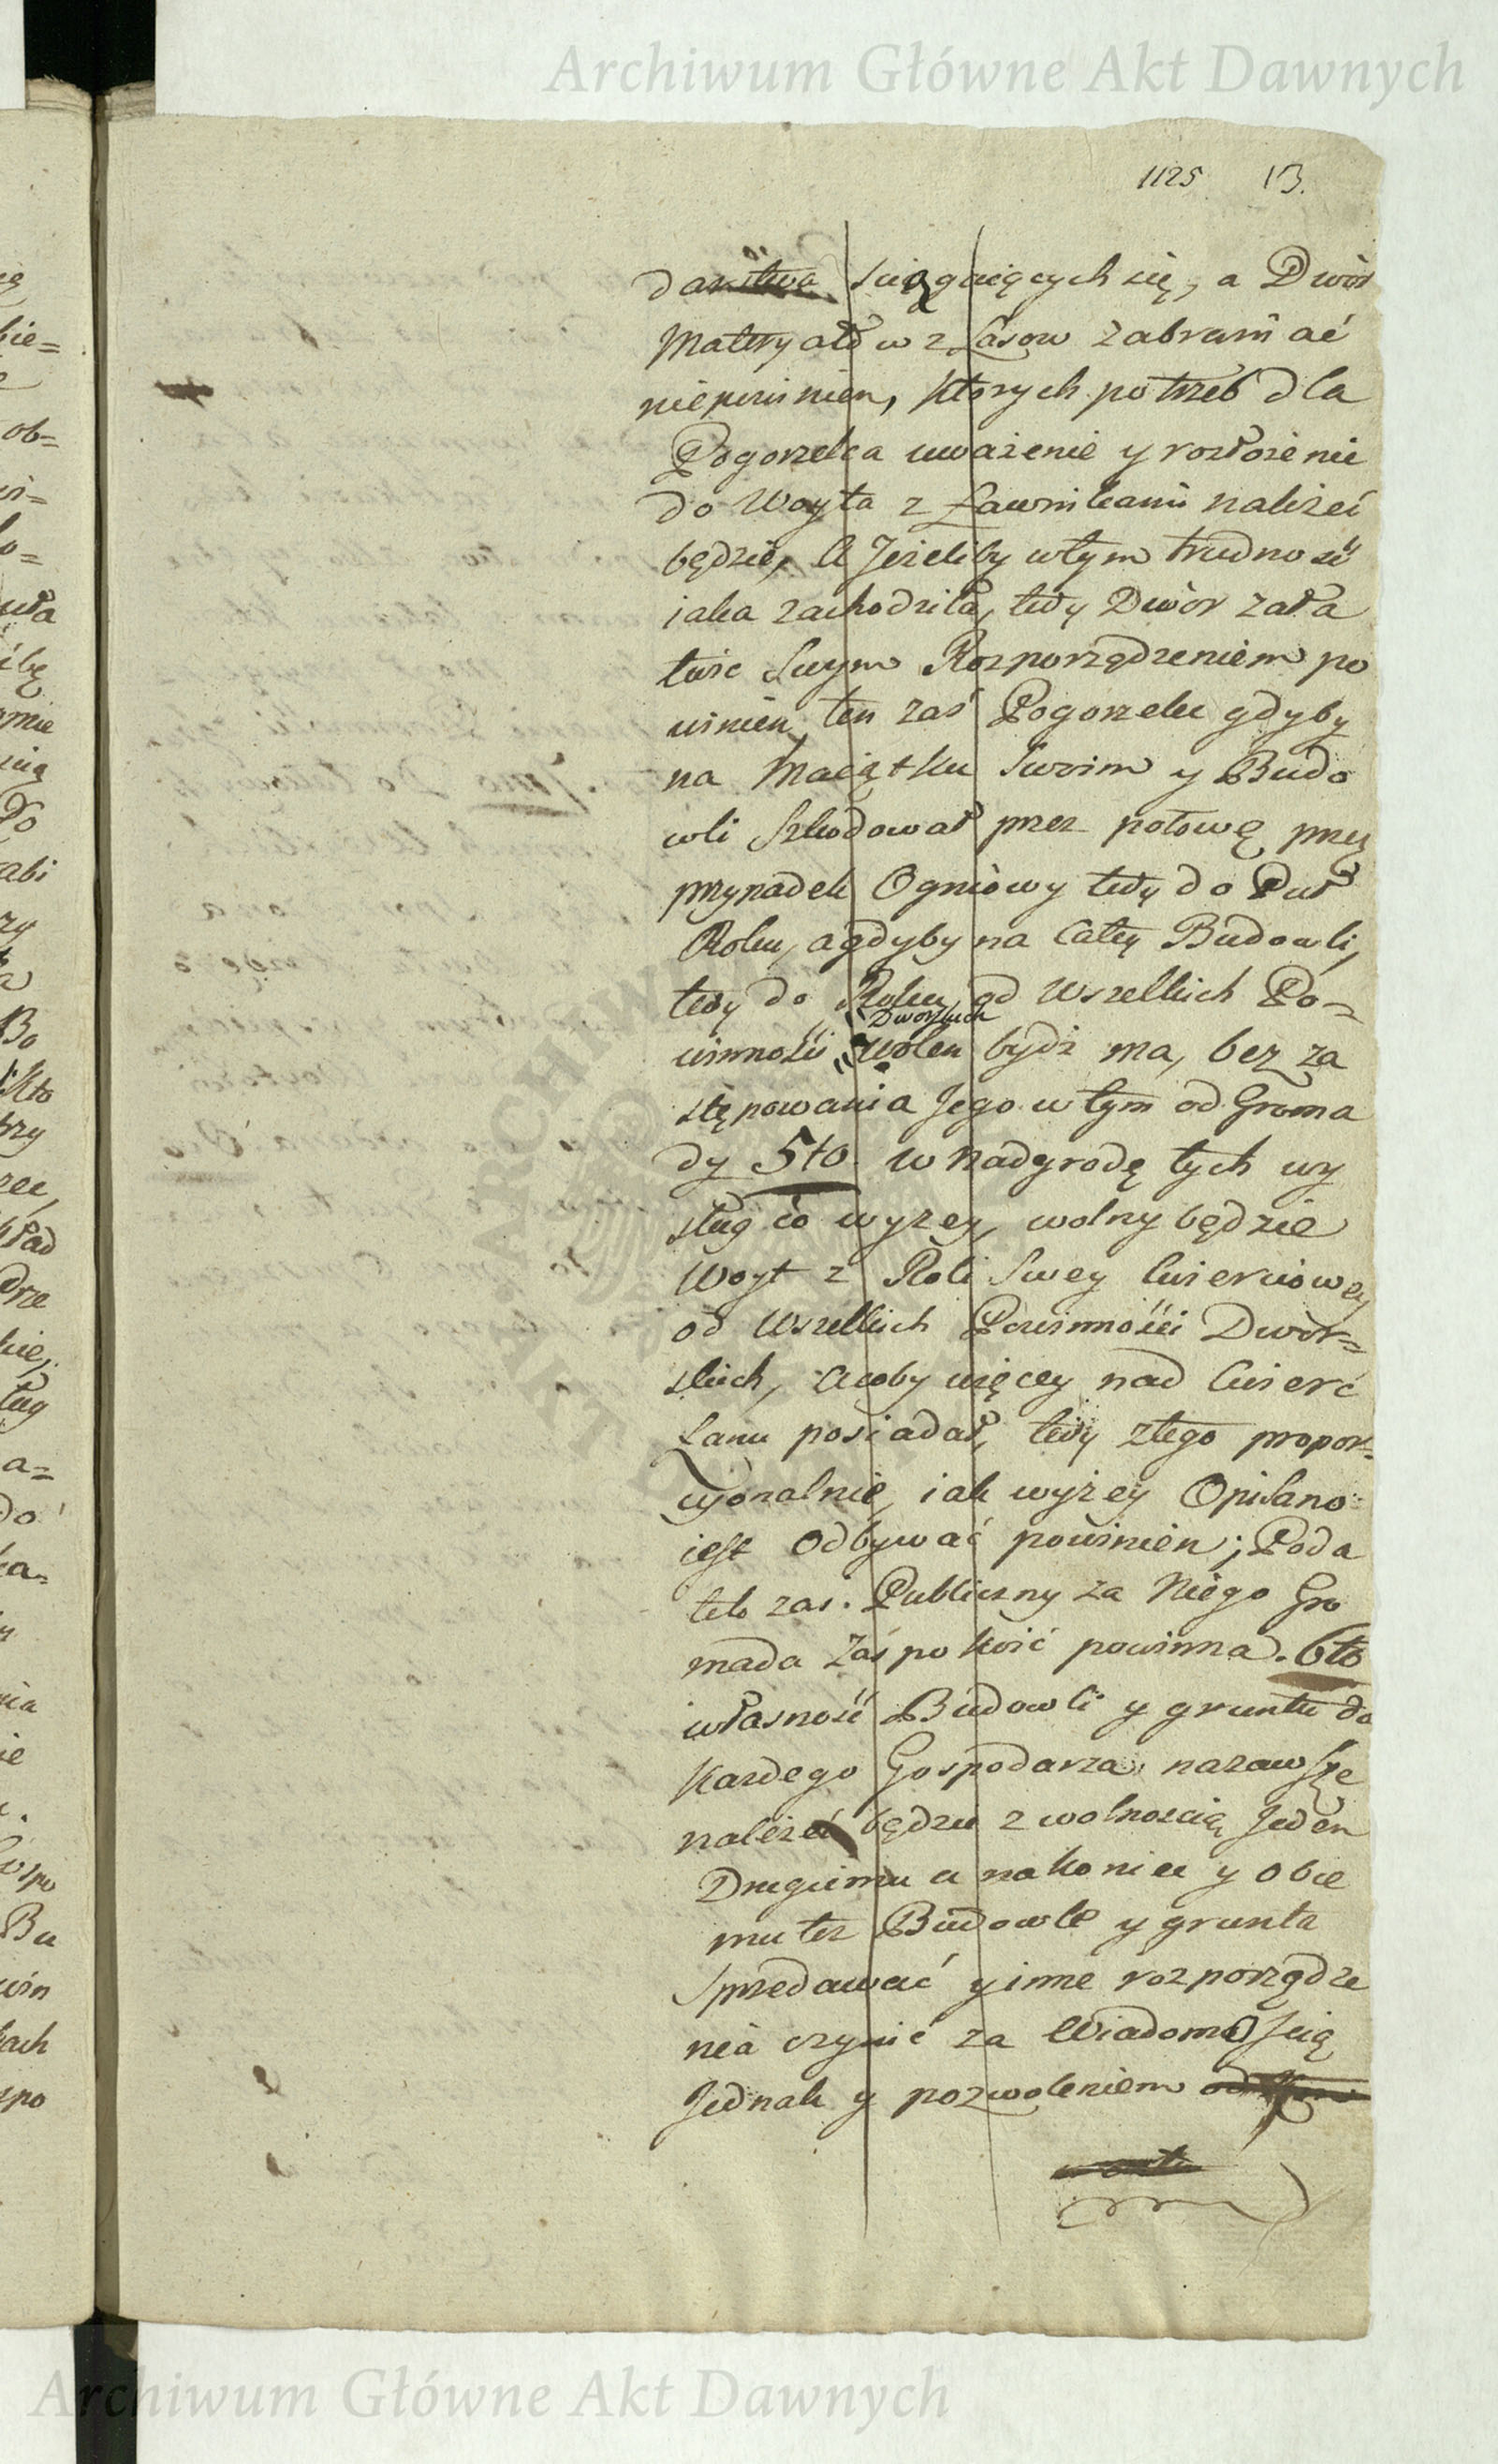 Archiwum Główne Akt Dawnych
1125 13.
darstwa sciągaiących się, a Dwór
Materyałów z Lasow zabraniać
niepowinien, których potrzeb dla
Pogorzelca uważenie y rozłożenie
do Woyta z Ławnikami należeć
będzie, A Jeżeliby wtym trudność
iaka zachodziła, tedy Dwór zała
twic Swym Rozporządzeniem po
winien, ten zaś Pogorzelec gdyby
na Maiątku Swoim y Budo
wli Szkodował przez połowę przez
przypadek Ogniowy tedy do Puł
Roku, agdyby na całey Budowli,
tedy do Roku, od Wszelkich Po=
Dworskich
winności wolen bydź ma, bez za
stępowania Jego wtym od Groma
dy 5to. w Nadgrodę tych wy
sług co wyzey, wolny będzie
Woyt z Roli Swey Cwierciowey
od Wszelkich Powinności Dwor=
skich, Acoby więcey nad Cwierć
Łanu posiadał, tedy ztego propor=
cyonalnie, iak wyżey Opisano
iest Odbywać powinien; Poda
tek zas. Publiczny za Niego Gro
mada Zaspokoić powinna. 6to
własność Budowli y gruntu do
Każdego Gospodarza nazawsze
należeć będzie z wolnością Jeden
Drugiemu a nakoniec y obce
mu też Budowle y grunta
Sprzedawać y inne rozporządze
nia czynić za Wiadomością
Jednak y pozwoleniem
Archiwum Główne Akt Dawnych